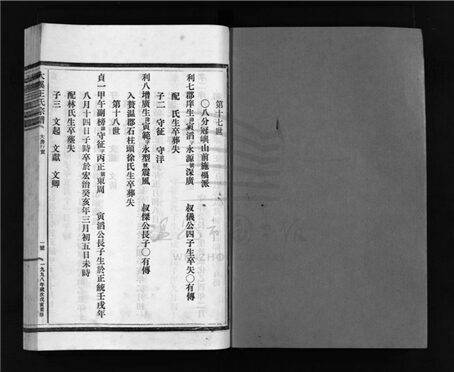 第十七世
○八分冠嶼山前施福派
利七郡庠生諱寅滔字永源號深廣 叔儀公四子生卒失○有傳
配 氏生卒葬失
子二 守征 守洋
利八增廣生諱寅範字永型號震風 叔傑公長子○有傳
入贅溫郡石柱頭徐氏生卒葬失
第十八世
貞一甲午副榜諱守征字丙正號東周 寅滔公長子生於正統壬戌年
八月十四日子時卒於宏治癸亥年三月初五日未時
配林氏生卒葬失
子三 文起 文獻 文卿
一九九八年歲次戊寅重修